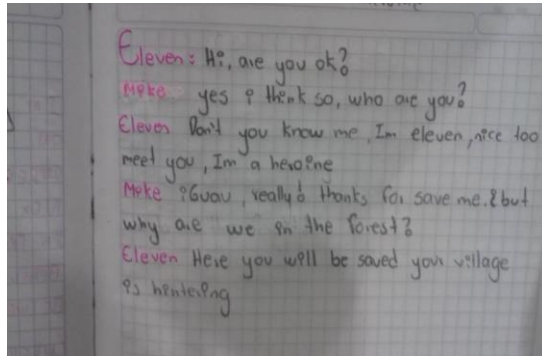 Eleven: Hi, are you ok?
Mike yes i think so, who are you?
Eleven Don't you know me, Im eleven, nice too
meet you, Im a heroine
Mike ¡Guau, really! thanks for save me. ¿but
why are we in the forest?
Eleven Here you will be saved your village
is